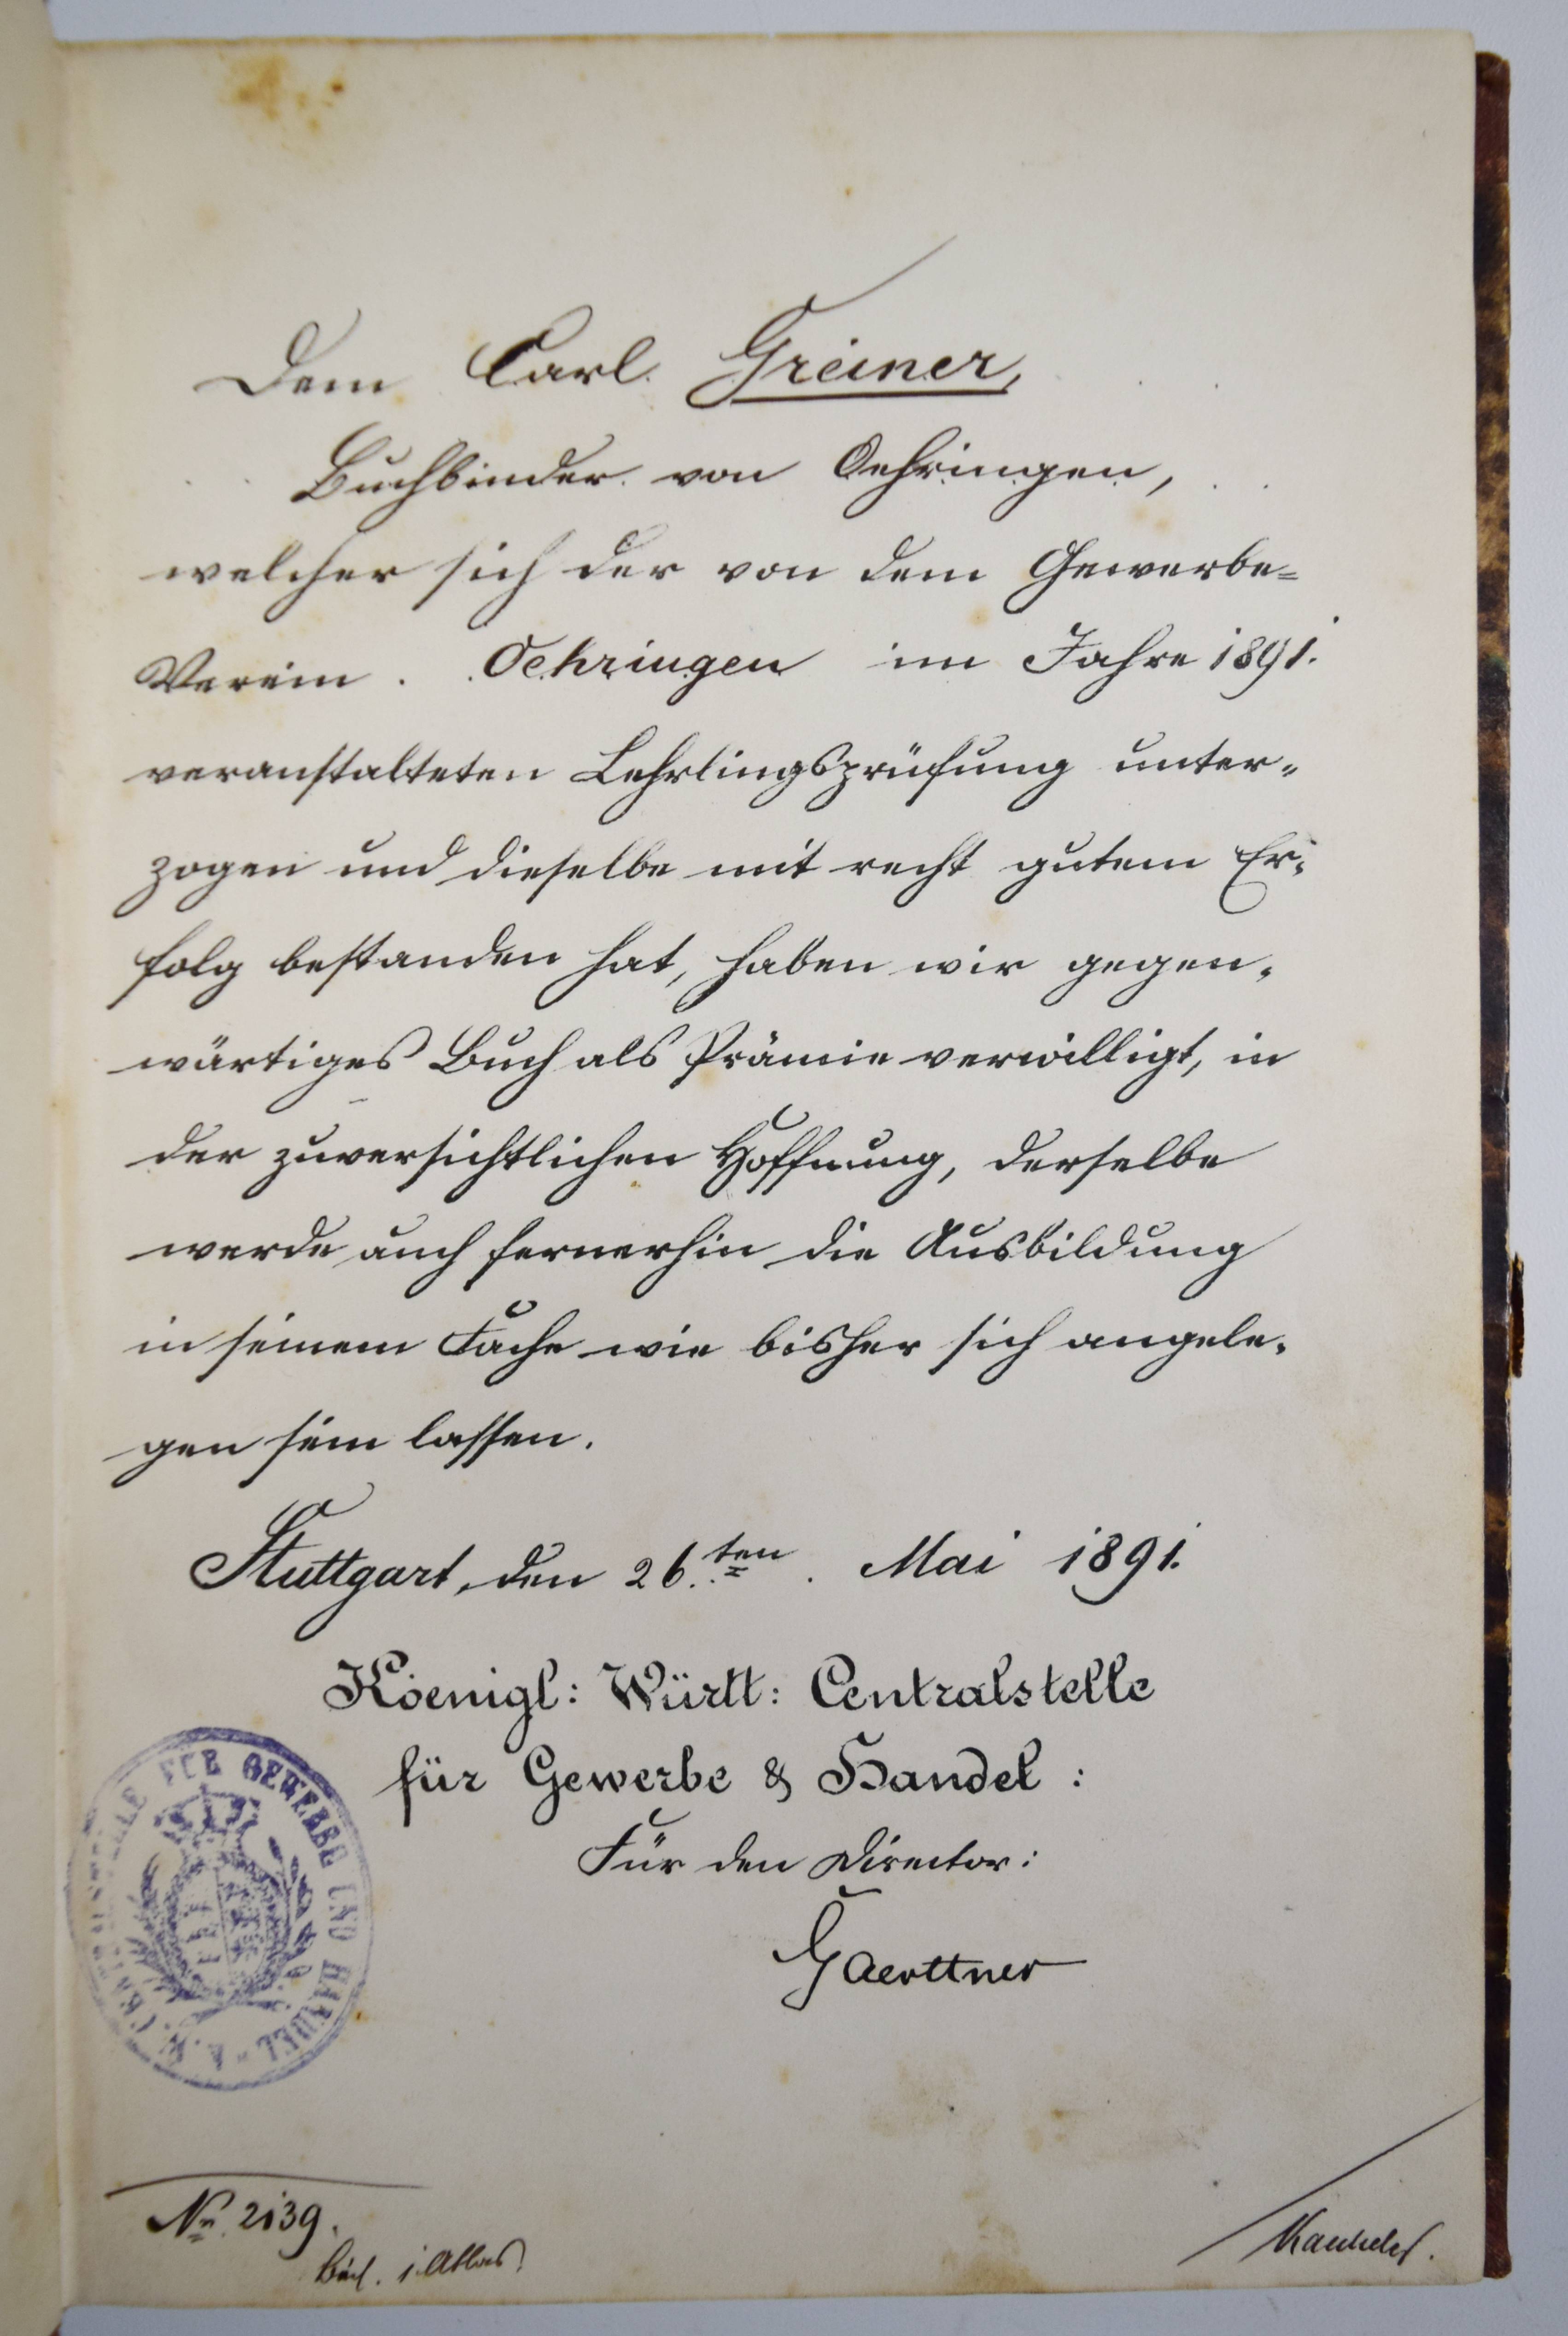 Dem Carl Greiner,
Buchbinder von Oehringen,
welcher sich der von dem Gewerbe=
Verein Oehringen im Jahre 1891.
veranstalteten Lehrlingsprüfung unter-
zogen und dieselbe mit recht gutem Er-
folg bestanden hat, haben wir gegen-
wärtiges Buch als Prämie verwilligt, in
der zuversichtlichen Hoffnung, derselbe
werde auch fernerhin die Ausbildung
in seinem Fache wie bisher sich angele-
gen sein lassen.
Stuttgart, den 26ten Mai 1891.
Koenigl: Württ: Centralstelle
für Gewerbe & Handel:
Für den Director:
Gaerttner
K. W. CENTRALSTELLE FÜR GEWERBE UND HANDEL
No. 2139.